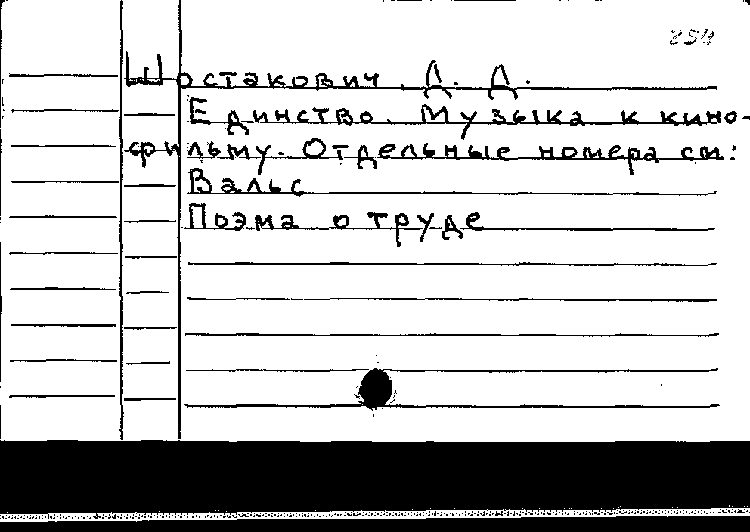 254
Шостакович Д. Д.
Единство. Музыка к кино-
фильму. Отдельные номера см:
Вальс
Поэма о труде